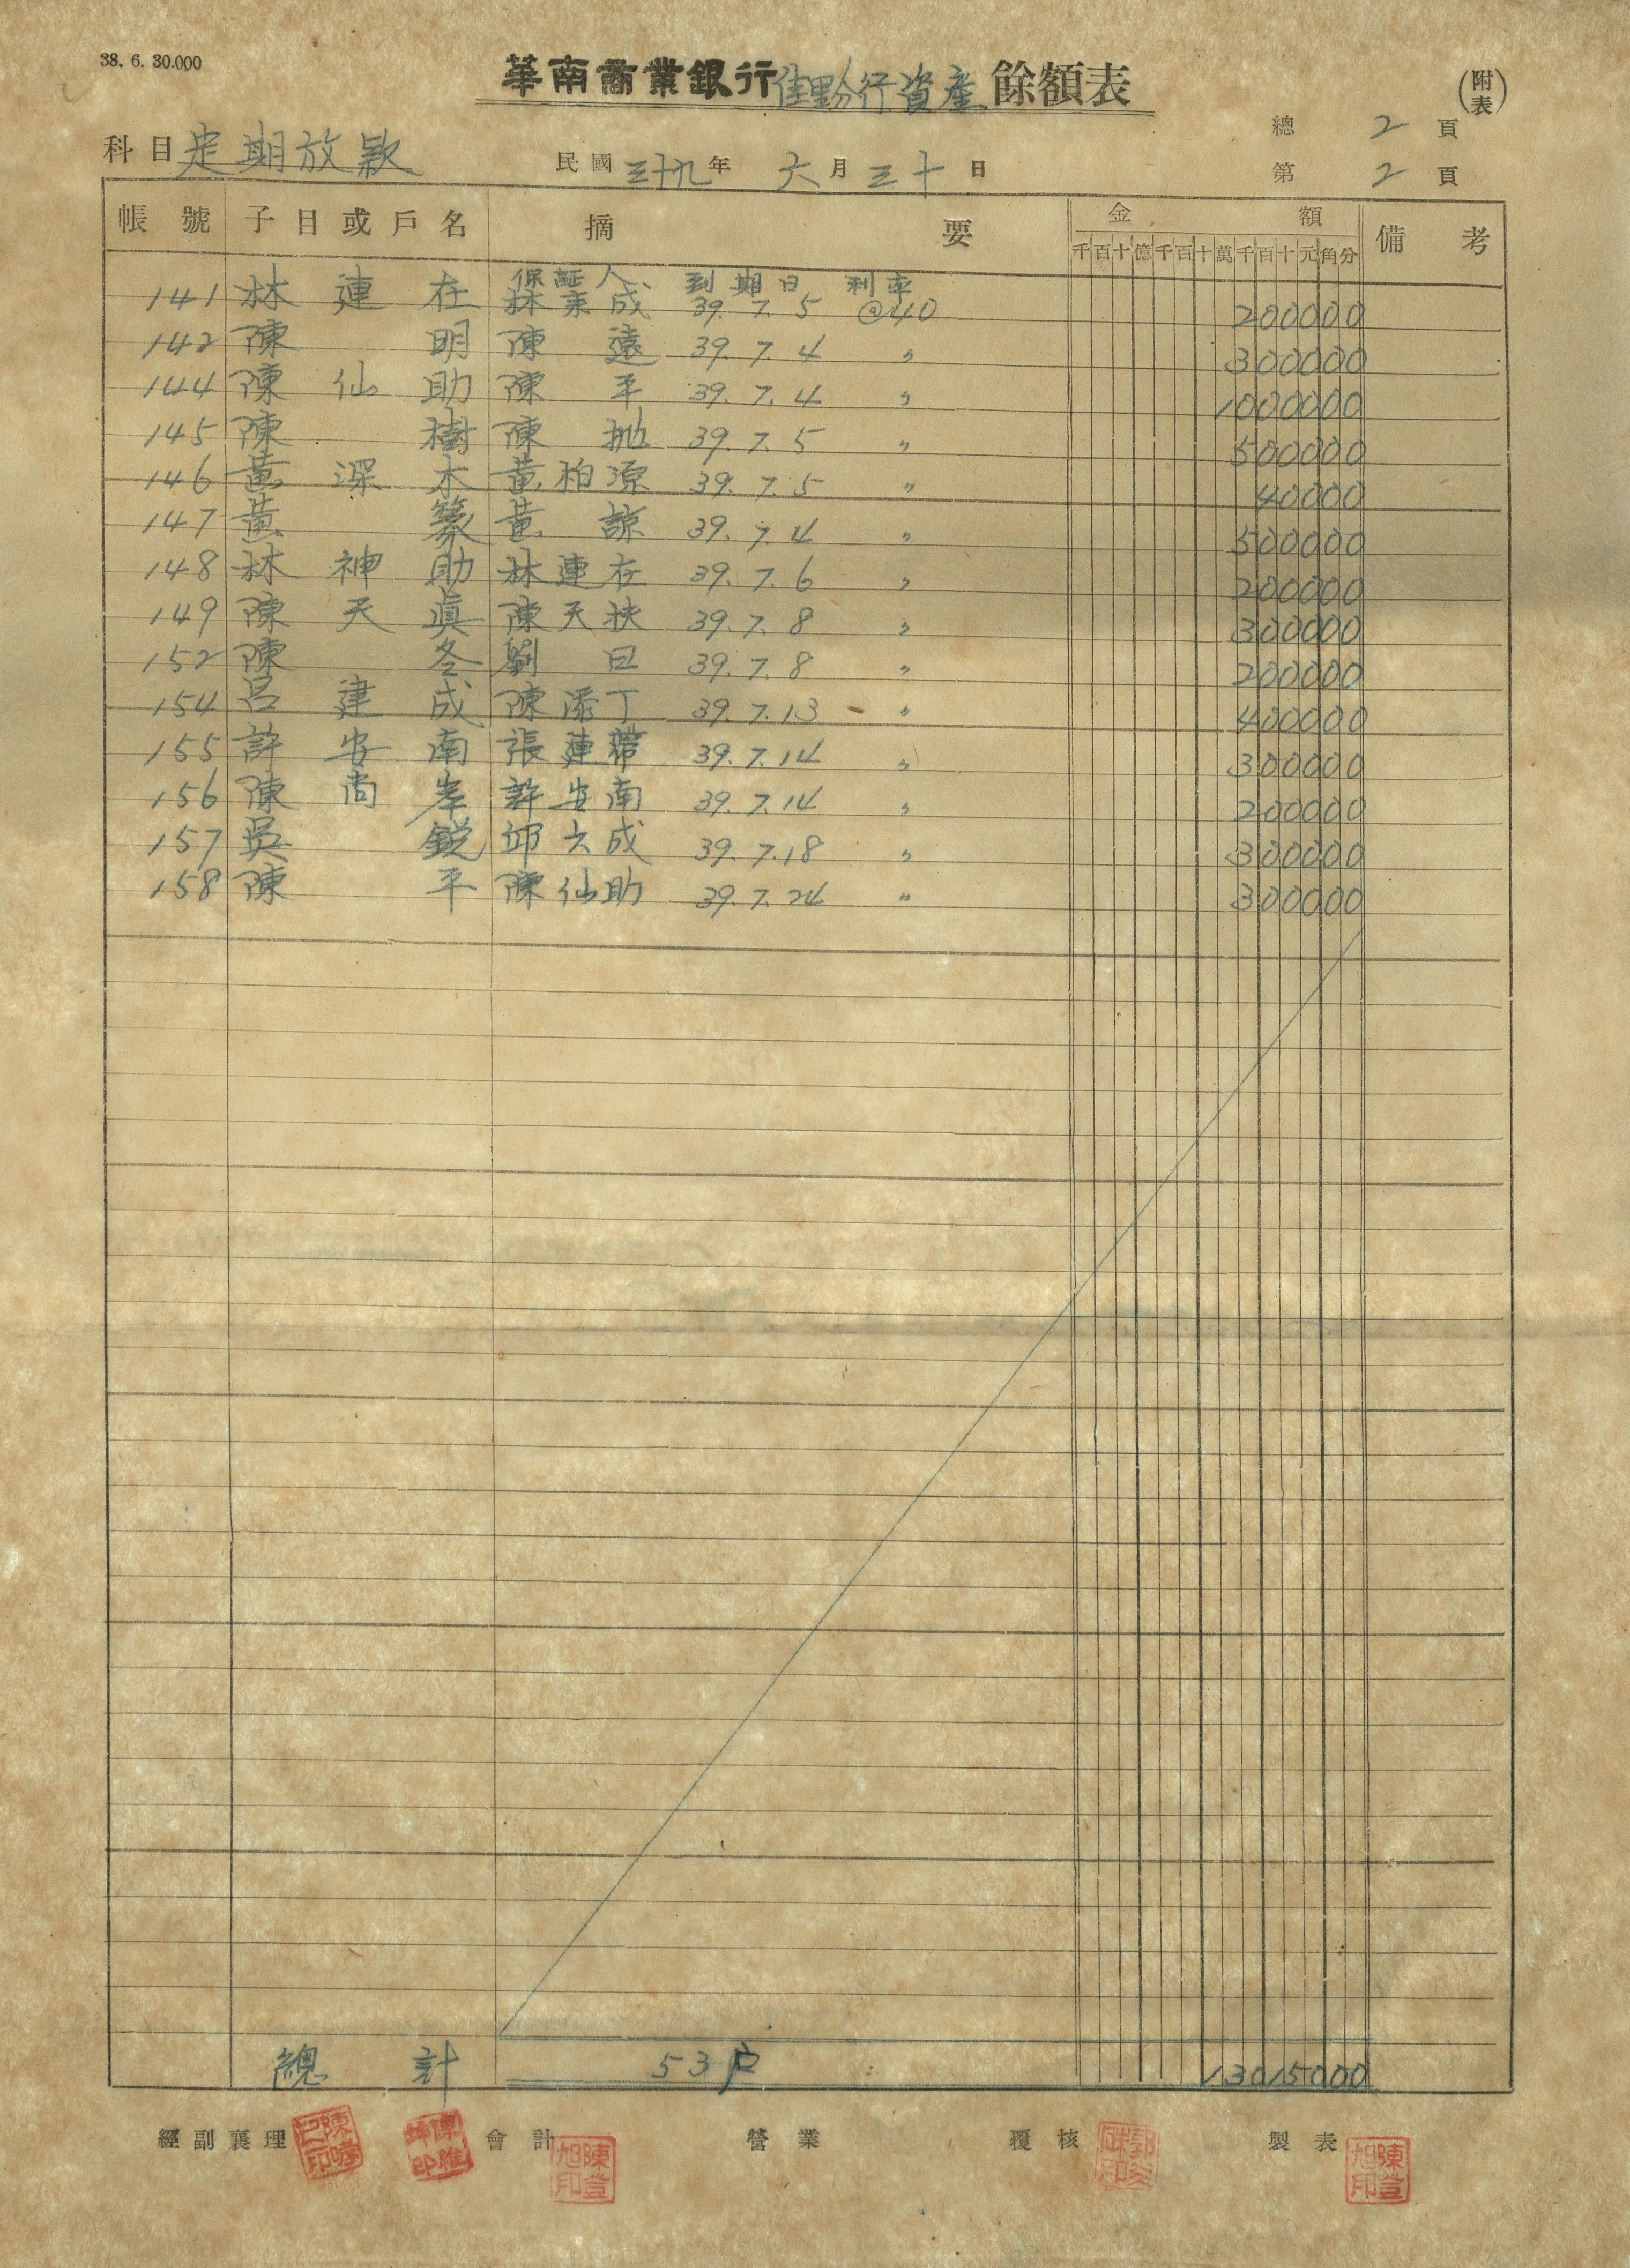 38. 6. 30.000
華南商業銀行佳里分行資產餘額表
(附表)
總 2 頁
科目 定期放款 民國 三十九 年 六 月 三十 日
第 2 頁
帳號 子目或戶名 摘要 金額 備考
千百十億千百十萬千百十元角分
保証人 到期日 利率
141 林連在 林秉成 39.7.5 @40 200000
142 陳明 陳遠 39.7.4 〃 300000
144 陳仙助 陳平 39.7.4 〃 1000000
145 陳樹 陳抛 39.7.5 〃 500000
146 黃深木 黃柏源 39.7.5 〃 40000
147 黃篆 黃諒 39.7.4 〃 500000
148 林神助 林連在 39.7.6 〃 200000
149 陳天真 陳天扶 39.7.8 〃 300000
152 陳冬 劉日 39.7.8 〃 200000
154 呂建成 陳添丁 39.7.13 〃 400000
155 許安南 張連帶 39.7.14 〃 300000
156 陳尚岸 許安南 39.7.14 〃 200000
157 吳銳 邱六成 39.7.18 〃 300000
158 陳平 陳仙助 39.7.24 〃 300000
總計 53戶 13015000
經副襄理 會計 營業 覆核 製表
陳登旭印 陳登旭印